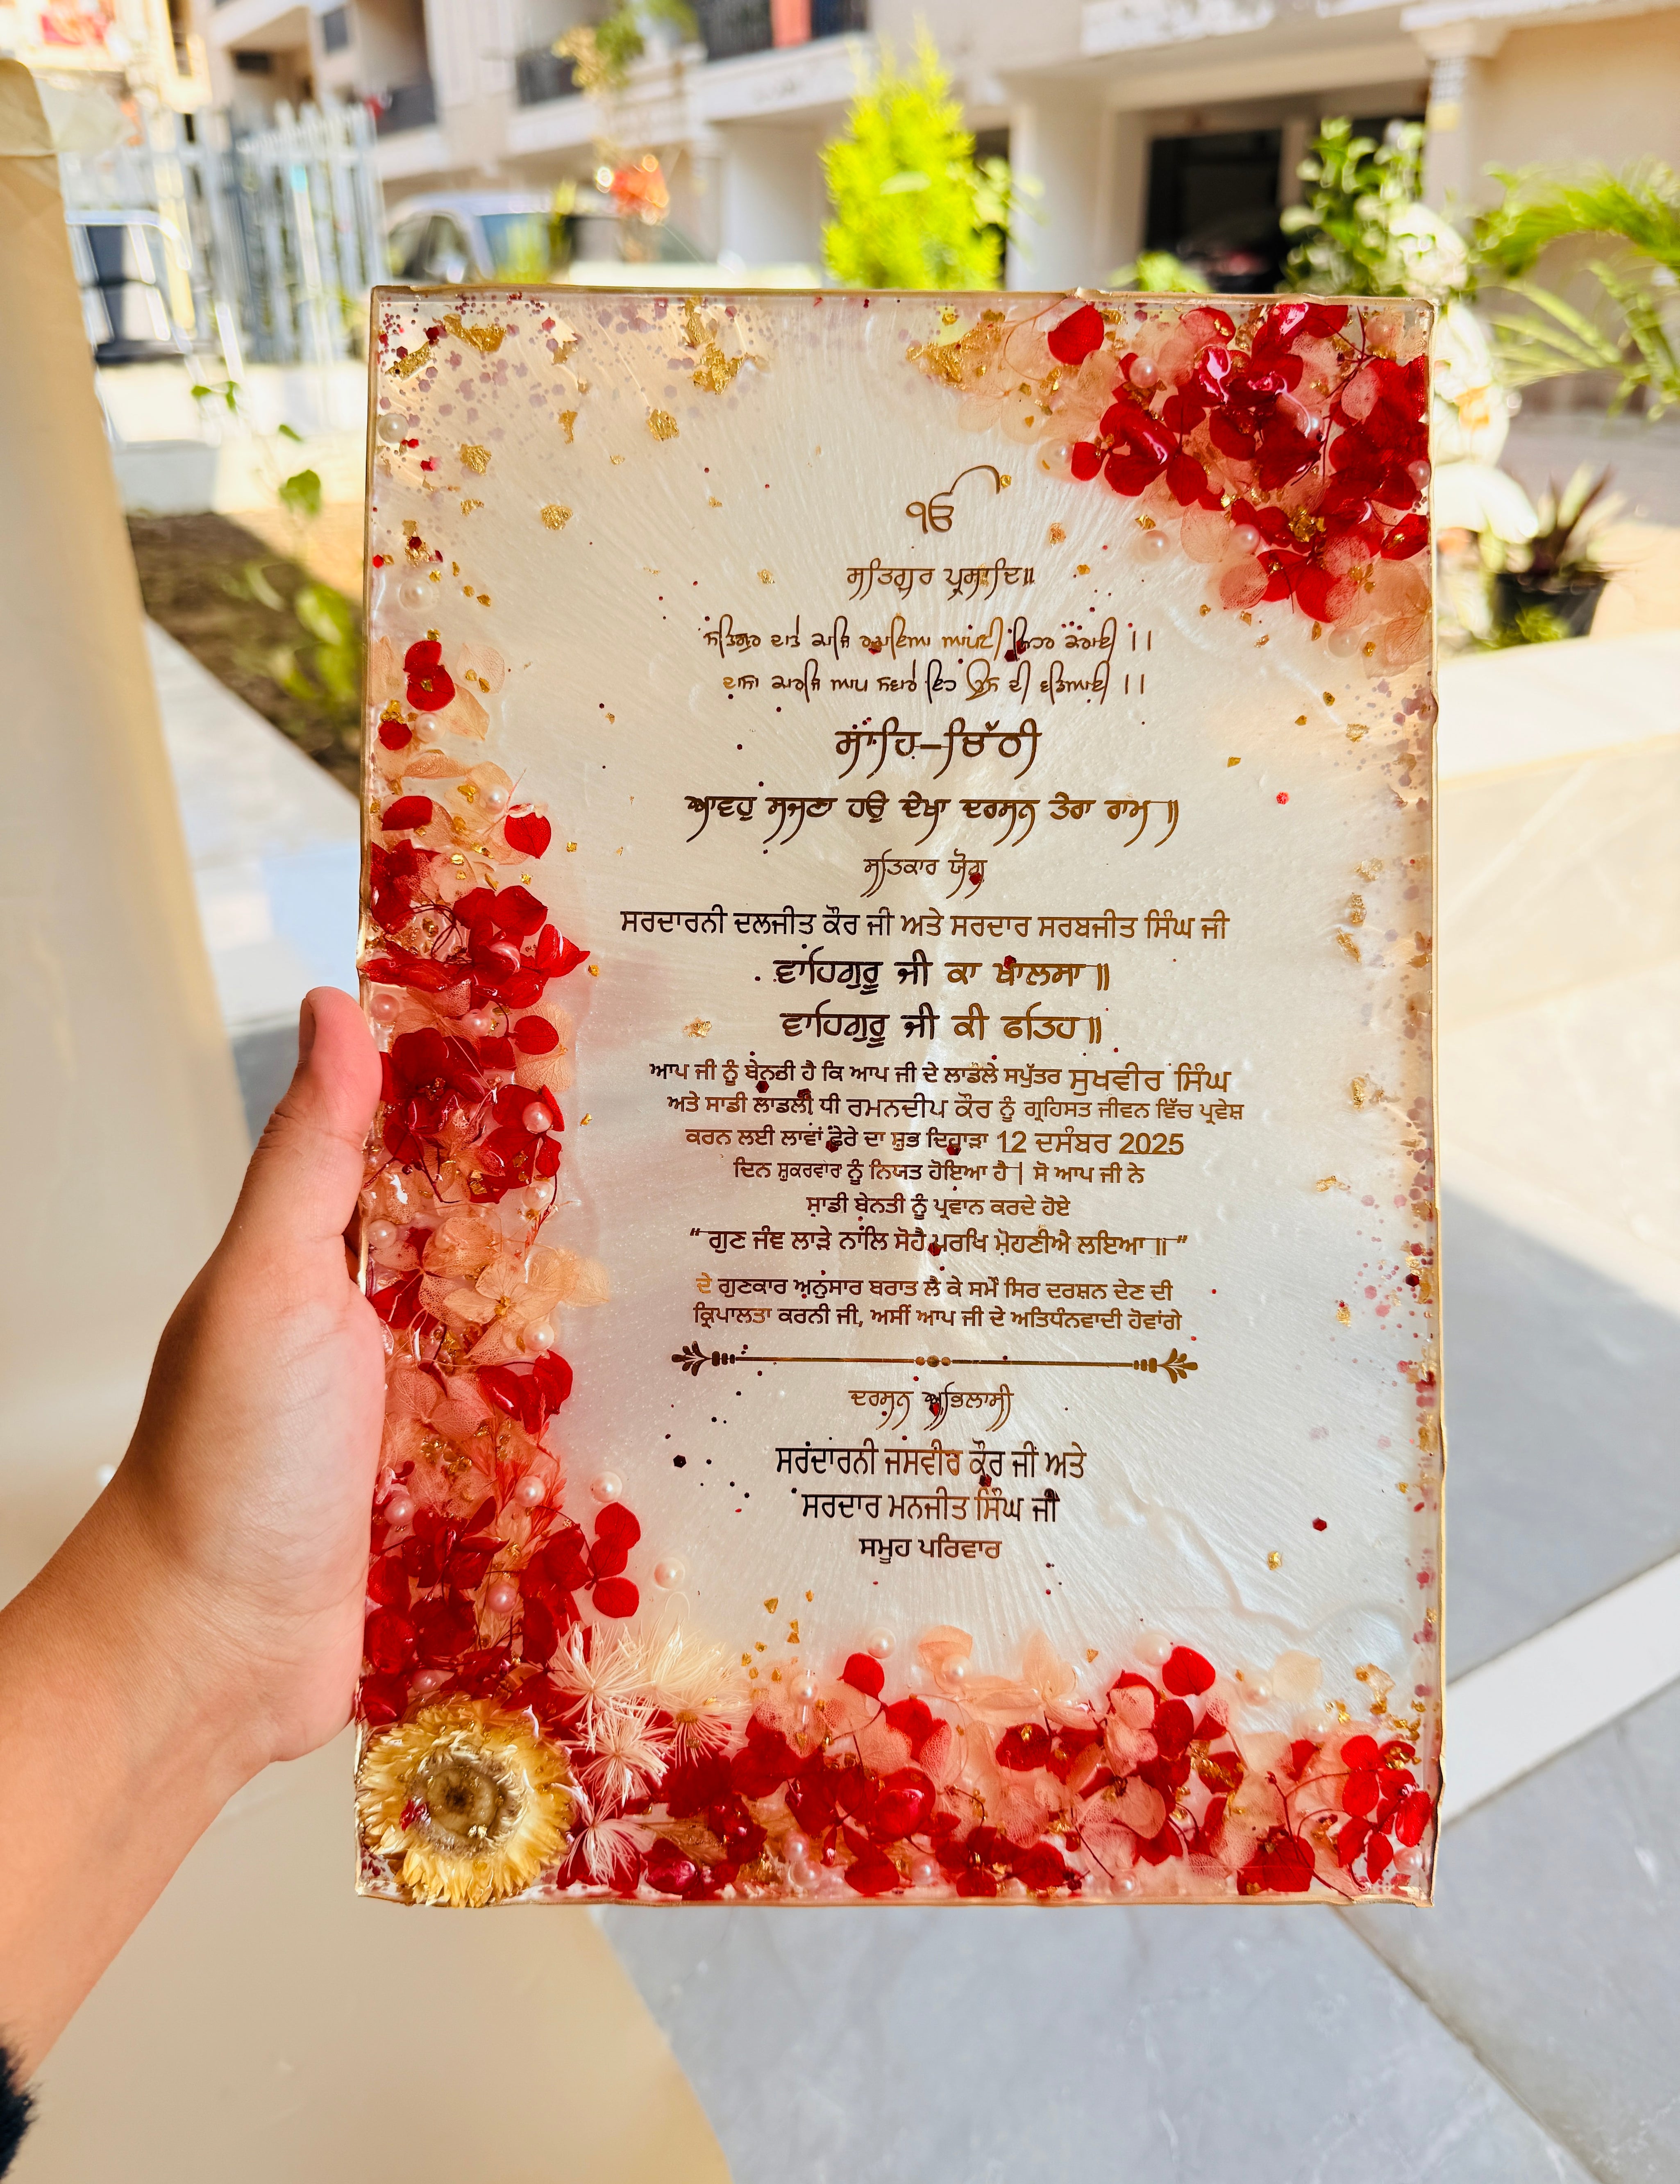 ੴ
ਸਤਿਗੁਰ ਪ੍ਰਸਾਦਿ॥
ਸਤਿਗੁਰ ਦਾਤੇ ਕਾਜਿ ਰਚਾਇਆ ਆਪਣੀ ਮਿਹਰ ਕਰਾਈ ।।
ਦਾਸਾ ਕਾਰਜਿ ਆਪ ਸਵਾਰੇ ਇਹ ਉਸ ਦੀ ਵਡਿਆਈ ।।
ਸਾਹਿ-ਚਿੱਠੀ
ਆਵਹੁ ਸਜਣਾ ਹਉ ਦੇਖਾ ਦਰਸਨ ਤੇਰਾ ਰਾਮ ॥
ਸਤਿਕਾਰ ਯੋਗ
ਸਰਦਾਰਨੀ ਦਲਜੀਤ ਕੌਰ ਜੀ ਅਤੇ ਸਰਦਾਰ ਸਰਬਜੀਤ ਸਿੰਘ ਜੀ
ਵਾਹਿਗੁਰੂ ਜੀ ਕਾ ਖਾਲਸਾ ॥
ਵਾਹਿਗੁਰੂ ਜੀ ਕੀ ਫਤਿਹ ॥
ਆਪ ਜੀ ਨੂੰ ਬੇਨਤੀ ਹੈ ਕਿ ਆਪ ਜੀ ਦੇ ਲਾਡਲੇ ਸਪੁੱਤਰ ਸੁਖਵੀਰ ਸਿੰਘ
ਅਤੇ ਸਾਡੀ ਲਾਡਲੀ ਧੀ ਰਮਨਦੀਪ ਕੌਰ ਨੂੰ ਗ੍ਰਹਿਸਤ ਜੀਵਨ ਵਿੱਚ ਪ੍ਰਵੇਸ਼
ਕਰਨ ਲਈ ਲਾਵਾਂ ਫ਼ੇਰੇ ਦਾ ਸ਼ੁਭ ਦਿਹਾੜਾ 12 ਦਸੰਬਰ 2025
ਦਿਨ ਸ਼ੁਕਰਵਾਰ ਨੂੰ ਨਿਯਤ ਹੋਇਆ ਹੈ | ਸੋ ਆਪ ਜੀ ਨੇ
ਸਾਡੀ ਬੇਨਤੀ ਨੂੰ ਪ੍ਰਵਾਨ ਕਰਦੇ ਹੋਏ
“ ਗੁਣ ਜੰਞ ਲਾੜੇ ਨਾਲਿ ਸੋਹੈ ਪਰਖਿ ਮੋਹਣੀਐ ਲਇਆ ॥ ”
ਦੇ ਗੁਣਕਾਰ ਅਨੁਸਾਰ ਬਰਾਤ ਲੈ ਕੇ ਸਮੇਂ ਸਿਰ ਦਰਸ਼ਨ ਦੇਣ ਦੀ
ਕ੍ਰਿਪਾਲਤਾ ਕਰਨੀ ਜੀ, ਅਸੀਂ ਆਪ ਜੀ ਦੇ ਅਤਿਧੰਨਵਾਦੀ ਹੋਵਾਂਗੇ
ਦਰਸਨ ਅਭਿਲਾਸੀ
ਸਰਦਾਰਨੀ ਜਸਵੀਰ ਕੌਰ ਜੀ ਅਤੇ
ਸਰਦਾਰ ਮਨਜੀਤ ਸਿੰਘ ਜੀ
ਸਮੂਹ ਪਰਿਵਾਰ